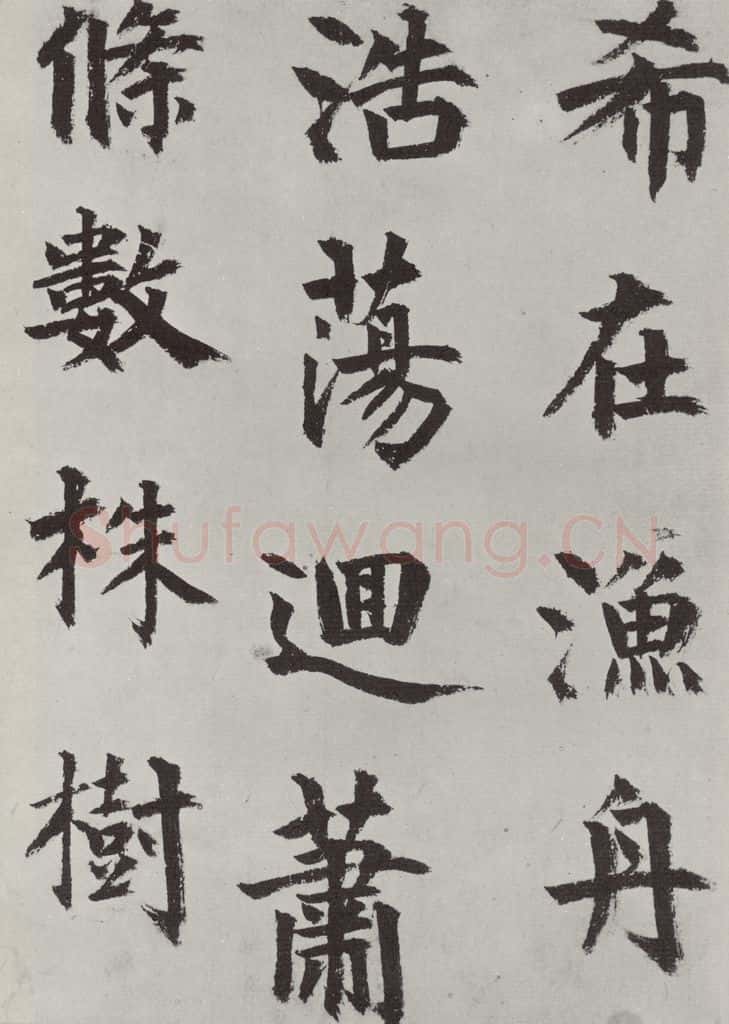 希在漁舟
浩蕩迴蕭
條數株樹
Shufawang.CN